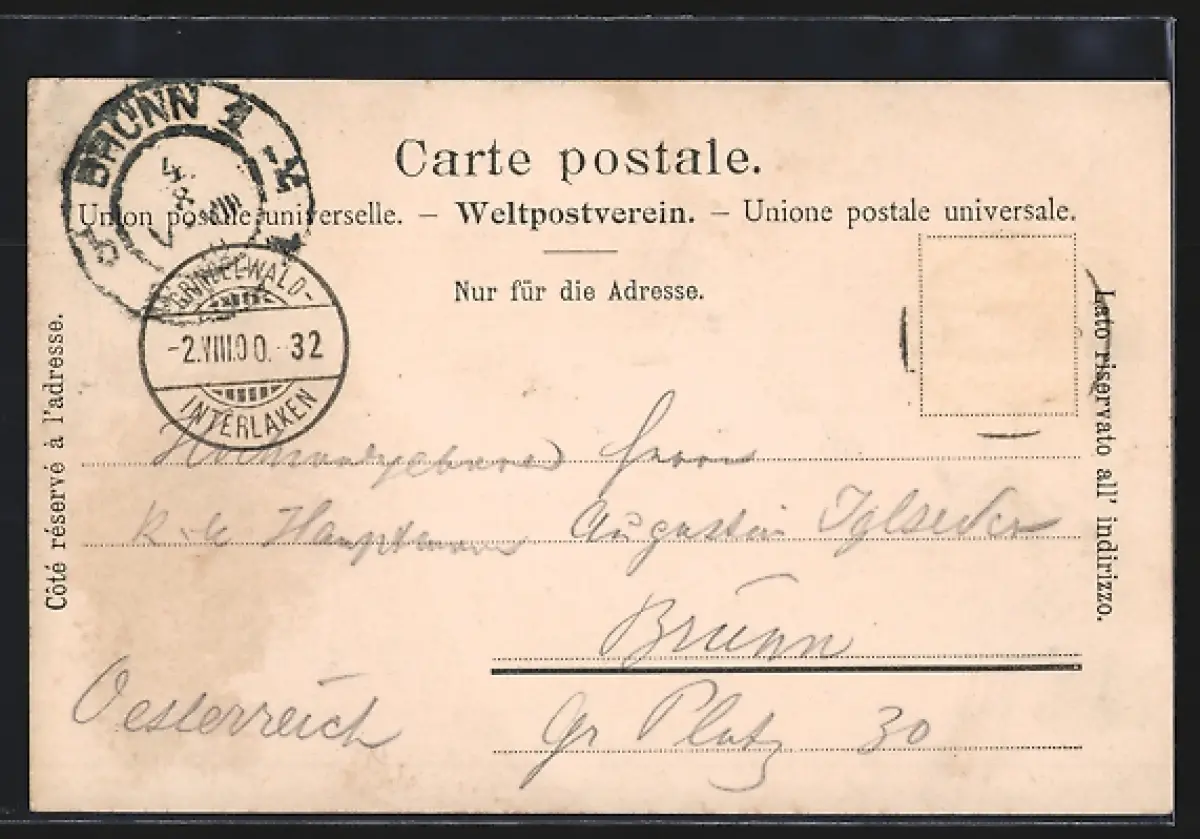 BRÜNN 1
4. 8
Carte postale.
Union postale universelle. – Weltpostverein. – Unione postale universale.
Nur für die Adresse.
GRINDELWALD-
-2.VIII.00.-32
INTERLAKEN
Côté réservé à l'adresse.
Lato riservato all' indirizzo.
Hochwohlgeboren Herrn
k. u. k. Hauptmann Augustin Iglseder
Brünn
Oesterreich Gr Platz 30